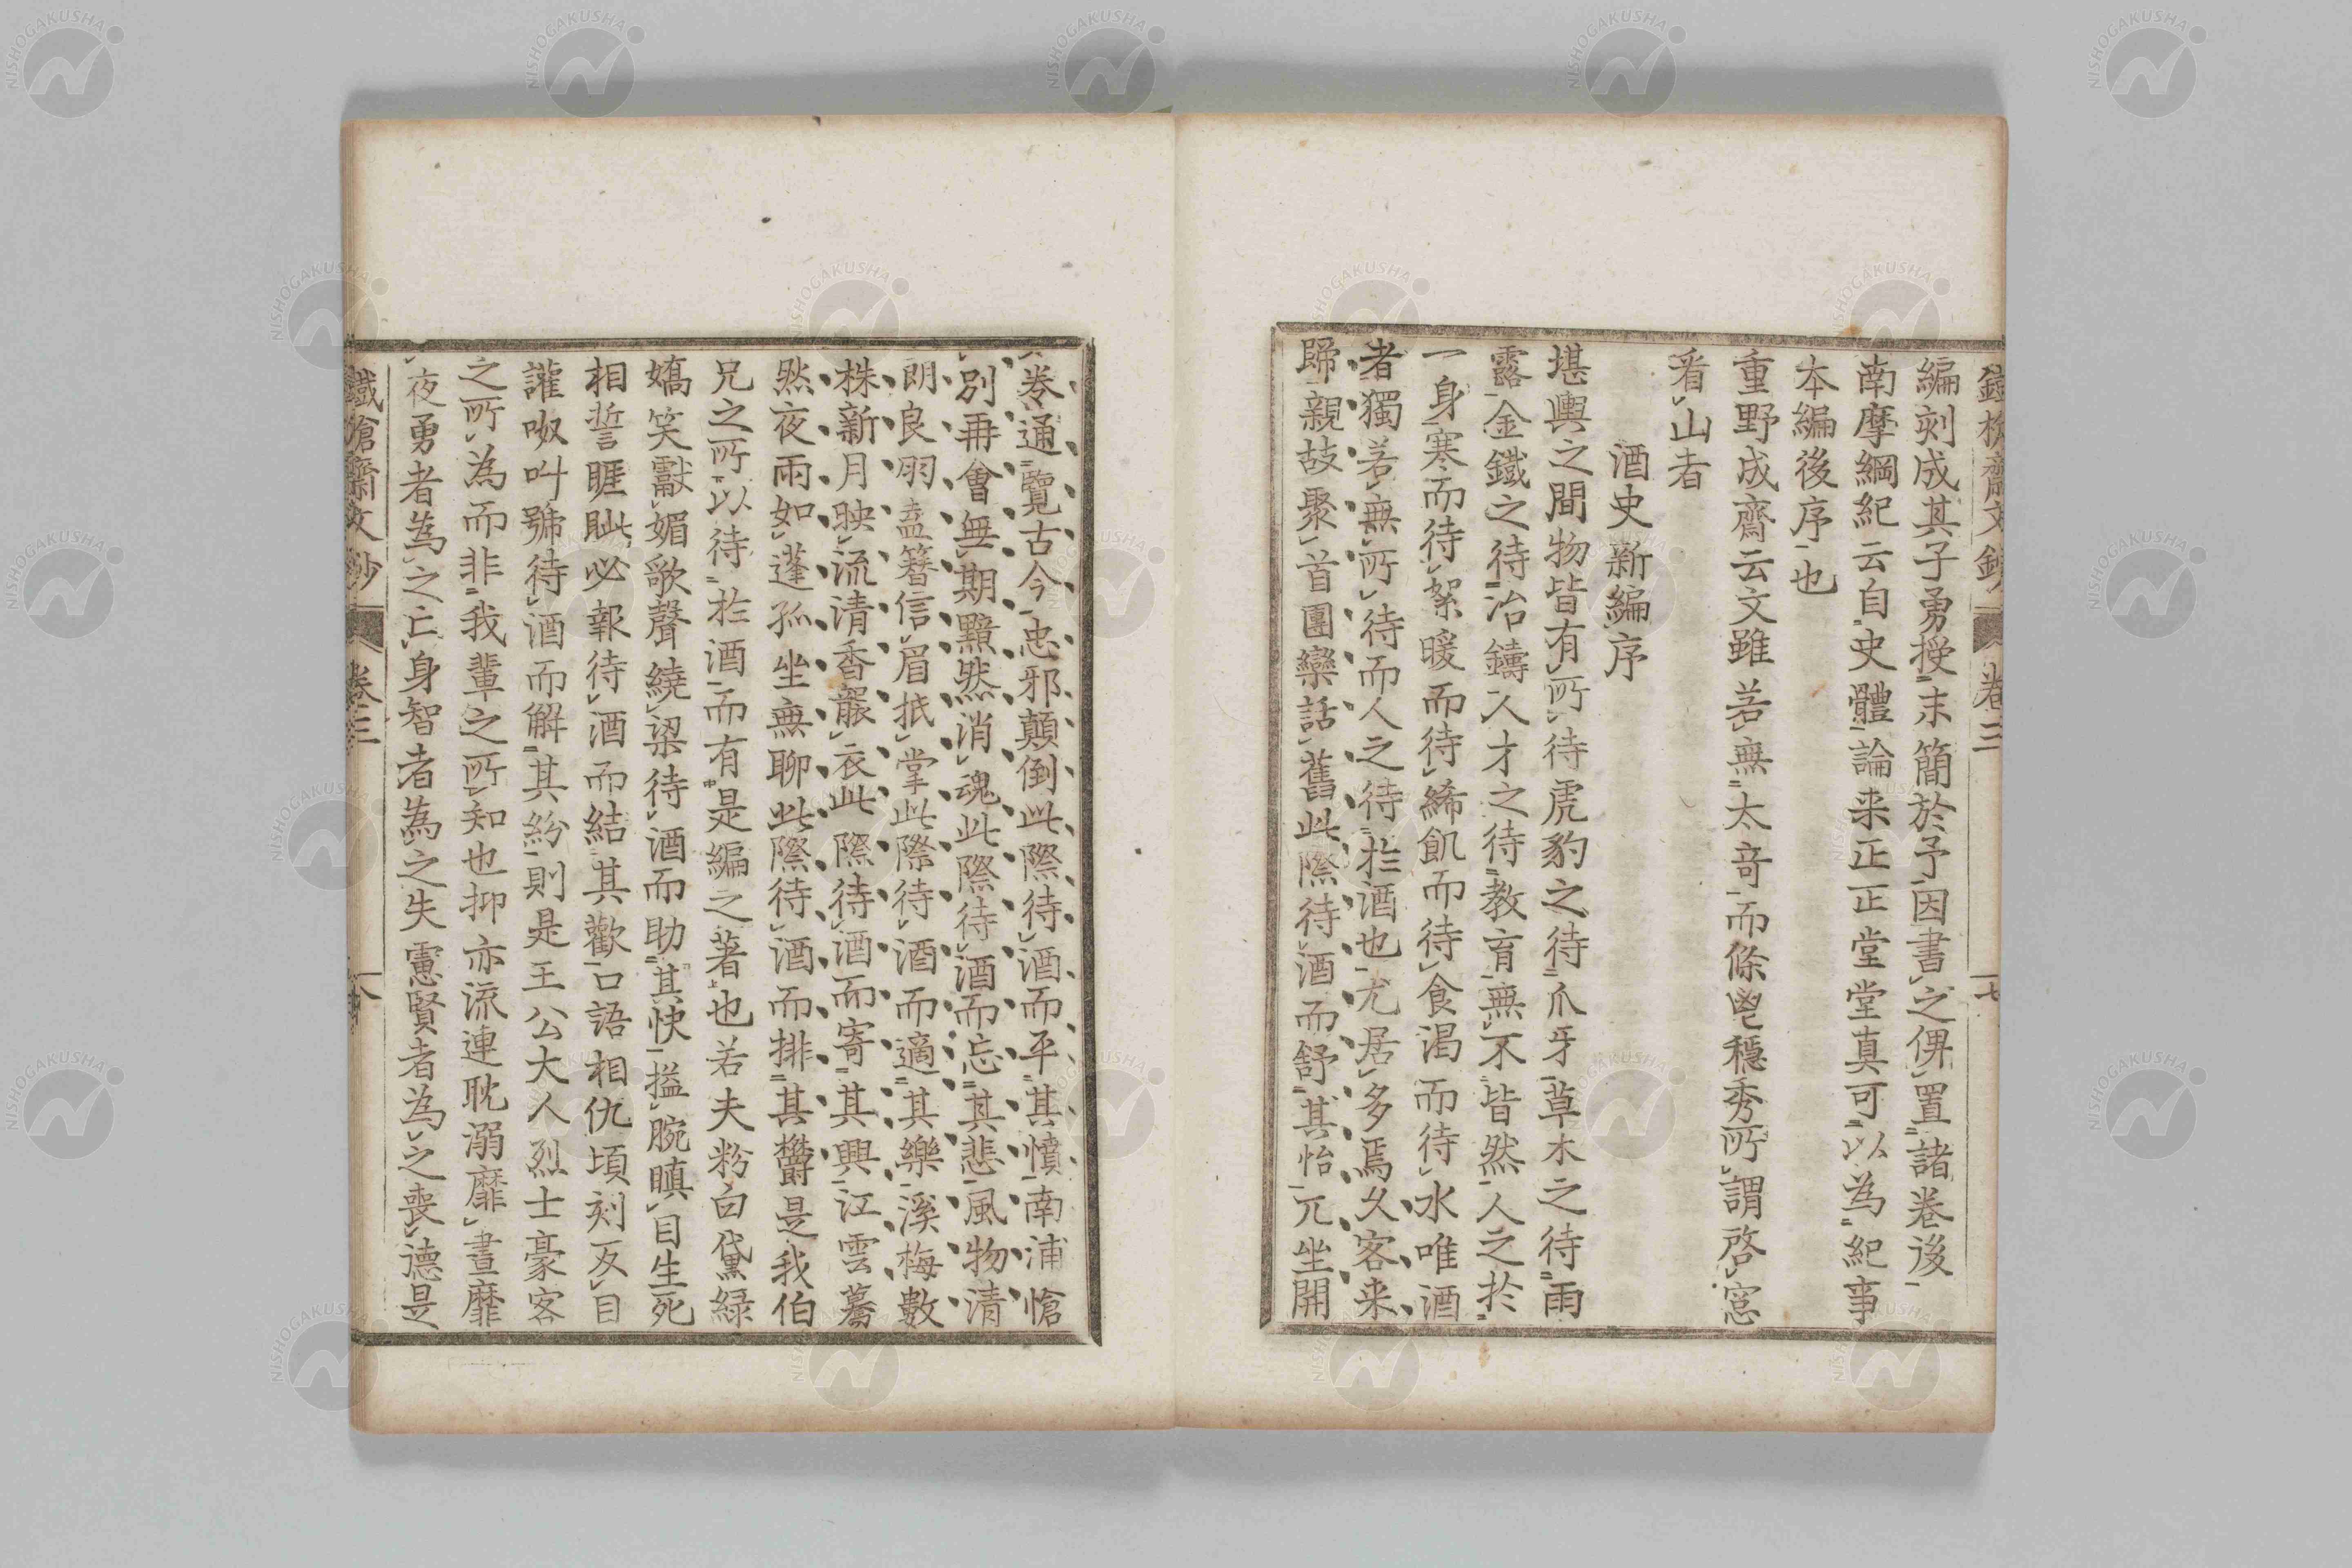 鐵槍齋文鈔 卷三 十七
編刻成其子勇授末簡於予因書之俾置諸卷後
南摩綱紀云自史體論来正正堂堂真可以為紀事
本編後序也
重野成齋云文雖若無太奇而條鬯穩秀所謂啓窓
看山者
酒史新編序
堪輿之間物皆有所待虎豹之待爪牙草木之待雨
露金鐵之待冶鑄人才之待教育無不皆然人之於
一身寒而待絮暖而待絺飢而待食渴而待水唯酒
者獨若無所待而人之待於酒也尤居多焉久客来
歸親故聚首團欒話舊此際待酒而舒其怡兀坐開
卷通覽古今忠邪顛倒此際待酒而平其憤南浦愴
別再會無期黯然消魂此際待酒而忘其悲風物清
朗良朋盍簪信眉抵掌此際待酒而適其樂溪梅數
株新月映流清香襲衣此際待酒而寄其興江雲驀
然夜雨如蓬孤坐無聊此際待酒而排其欝是我伯
兄之所以待於酒而有是編之著也若夫粉白黛緑
嬌笑獻媚歌聲繞梁待酒而助其快搤腕瞋目生死
相誓睚眦必報待酒而結其歡口語相仇頃刻反目
讙呶叫號待酒而解其紛則是王公大人烈士豪客
之所為而非我輩之所知也抑亦流連耽溺靡晝靡
夜勇者為之亡身智者為之失慮賢者為之喪德是
鐵槍齋文鈔 卷三 十八